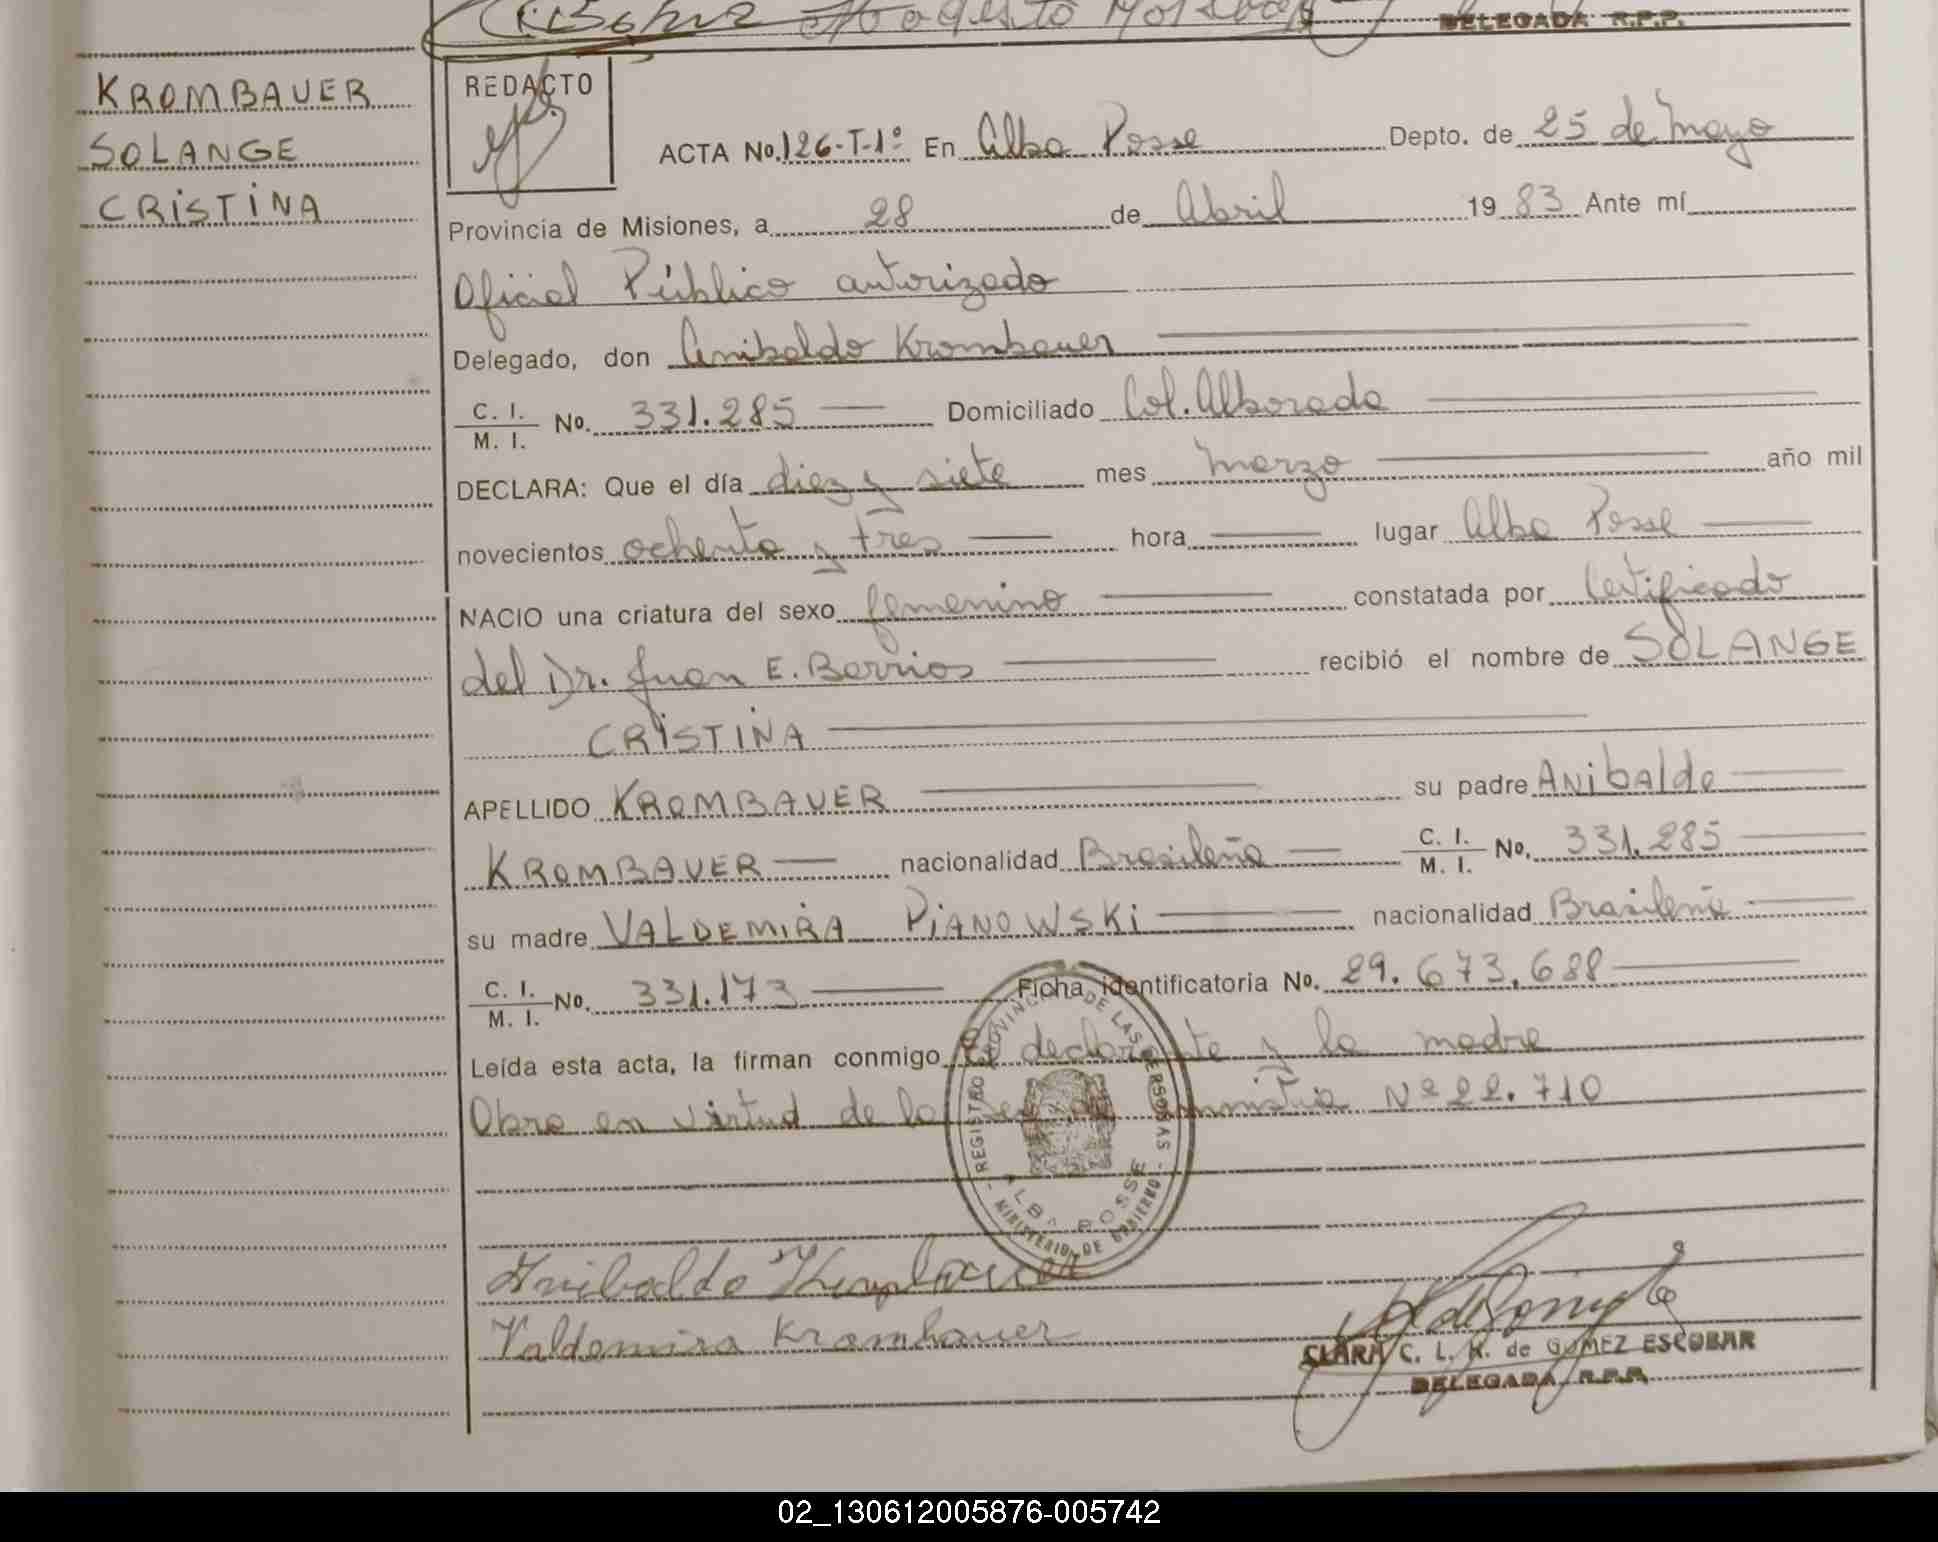 DELEGADA R.P.P.
KROMBAUER
SOLANGE
CRISTINA
REDACTO
ACTA No. 126-T-1º En Alba Posse Depto. de 25 de Mayo
Provincia de Misiones, a 28 de Abril 1983 Ante mí
Oficial Público autorizado
Delegado, don Anibaldo Krombauer
C. I. / M. I. No. 331.285 Domiciliado Col. Alborada
DECLARA: Que el día diez y siete mes marzo año mil
novecientos ochenta y tres hora lugar Alba Posse
NACIO una criatura del sexo femenino constatada por Certificado
del Dr. Juan E. Barrios recibió el nombre de SOLANGE
CRISTINA
APELLIDO KROMBAUER su padre ANIBALDO
KROMBAUER nacionalidad Brasileña C. I. / M. I. No. 331.285
su madre VALDEMIRA PIANOWSKI nacionalidad Brasileña
C. I. / M. I. No. 331.173 Ficha identificatoria No. 29.673.688
Leída esta acta, la firman conmigo El declarante y la madre
Obra en virtud de la Ley de Amnistia Nº 22.710
REGISTRO PROVINCIAL DE LAS PERSONAS - MINISTERIO DE GOBIERNO -
ALBA POSSE
Anibaldo Krombauer
Valdemira Krombauer
CLARA C. L. K. de GOMEZ ESCOBAR
DELEGADA R.P.P.
02_130612005876-005742